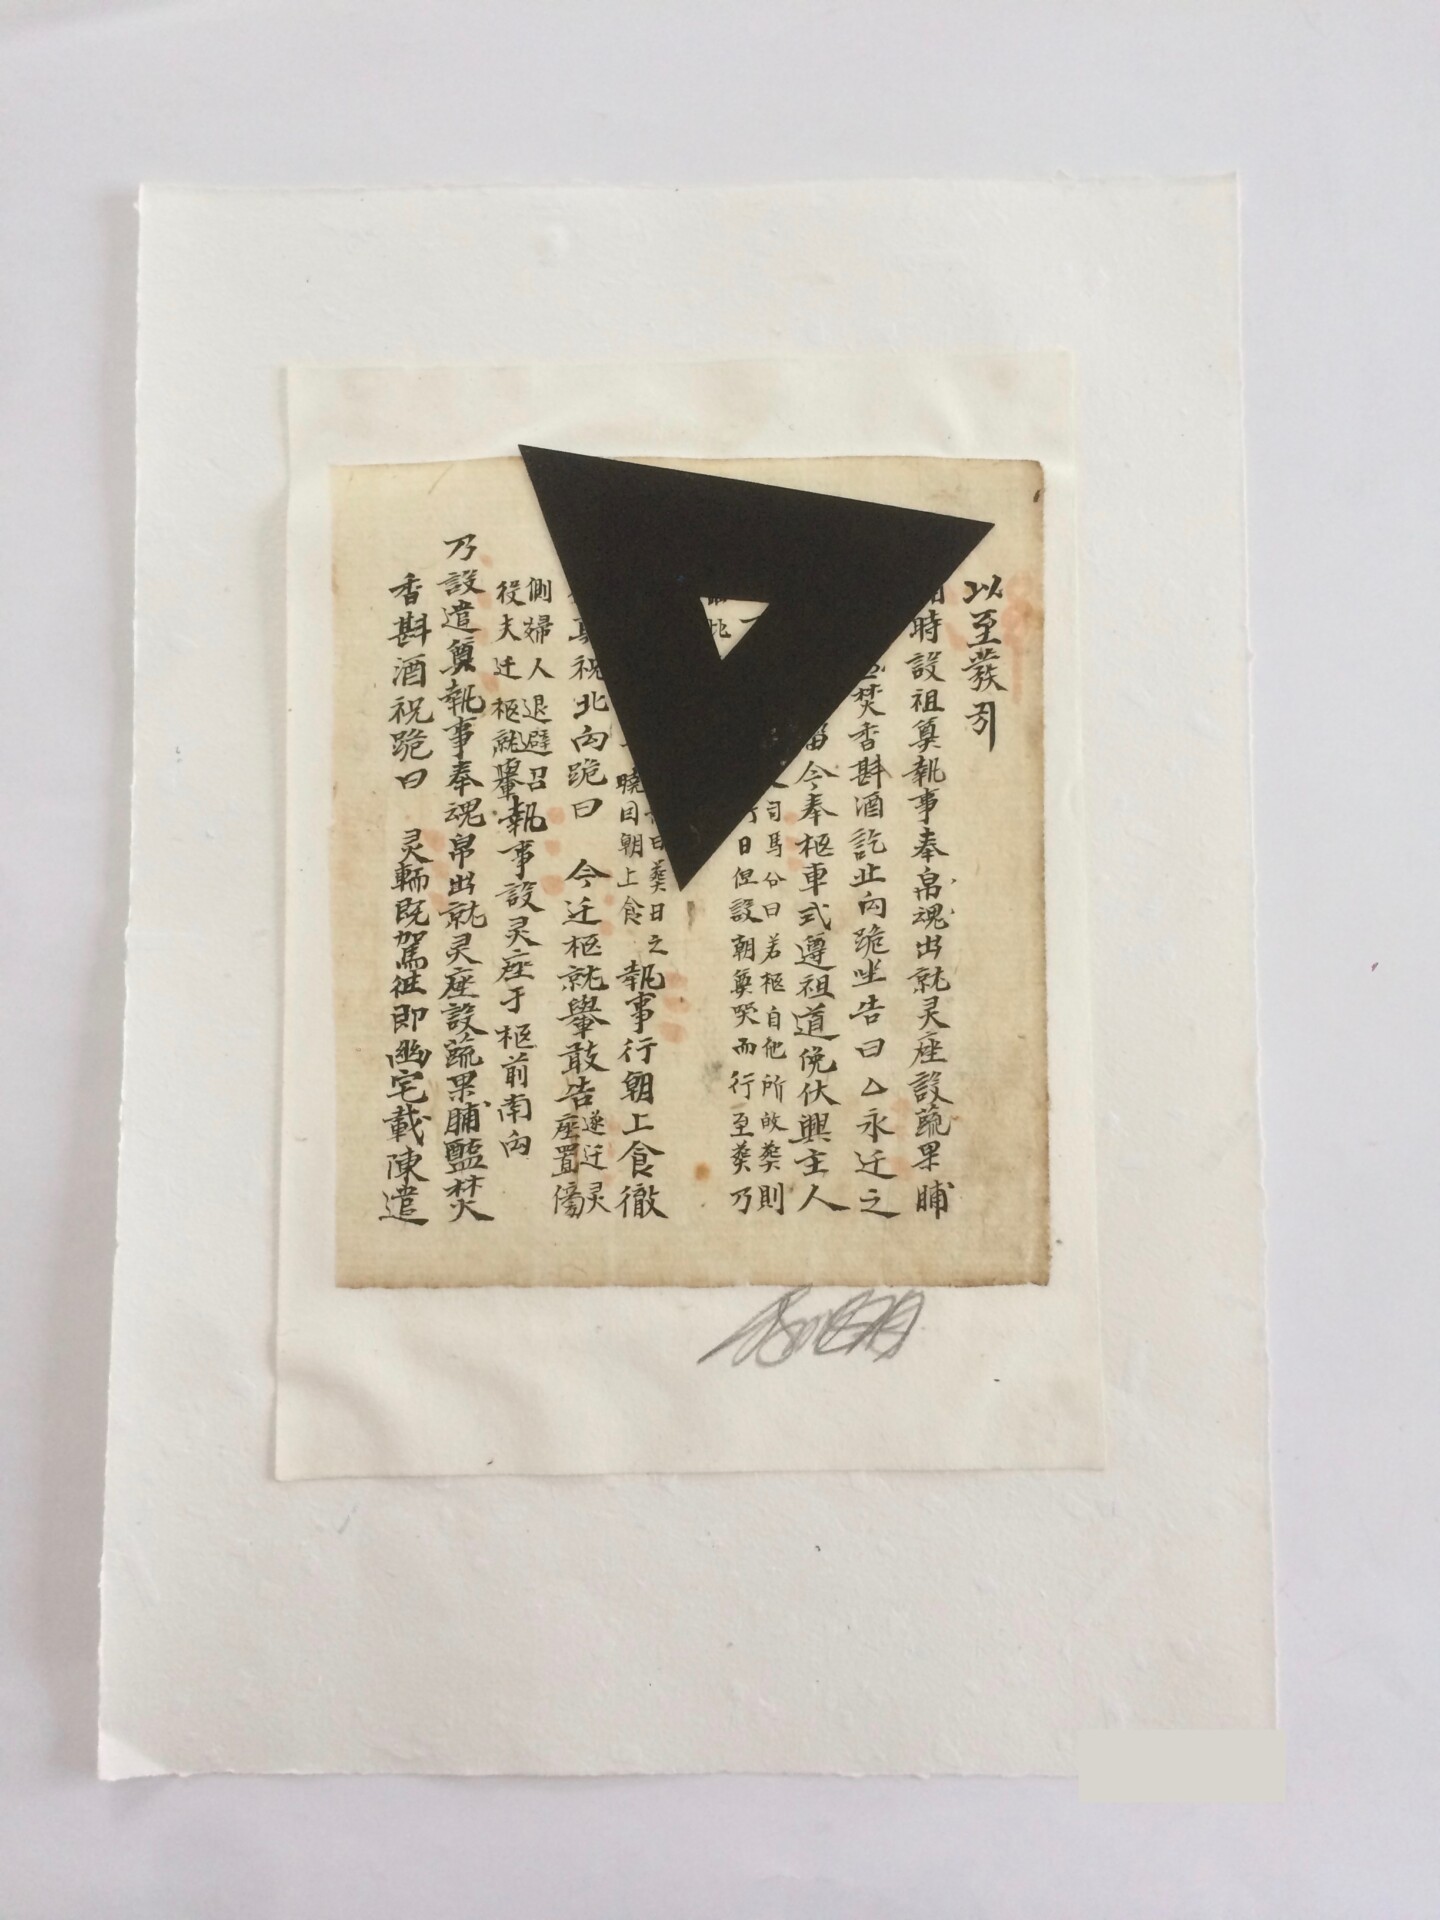 以至發引
時設祖奠執事奉帛魂出就灵座設蔬果脯
焚香斟酒訖北向跪坐告曰厶永迁之
今奉柩車式遵祖道俛伏興主人
司馬公曰若柩自他所啟葬則
日但設朝奠哭而行至葬乃
北
日葬日之
曉因朝上食
執事行朝上食徹
祝北向跪曰 今迁柩就轝敢告
遂迁灵
座置傍
側婦人退避召
役夫迁柩就轝
執事設灵座于柩前南向
乃設遣奠執事奉魂帛出就灵座設蔬果脯醢焚
香斟酒祝跪曰 灵輀既駕徃即幽宅載陳遣